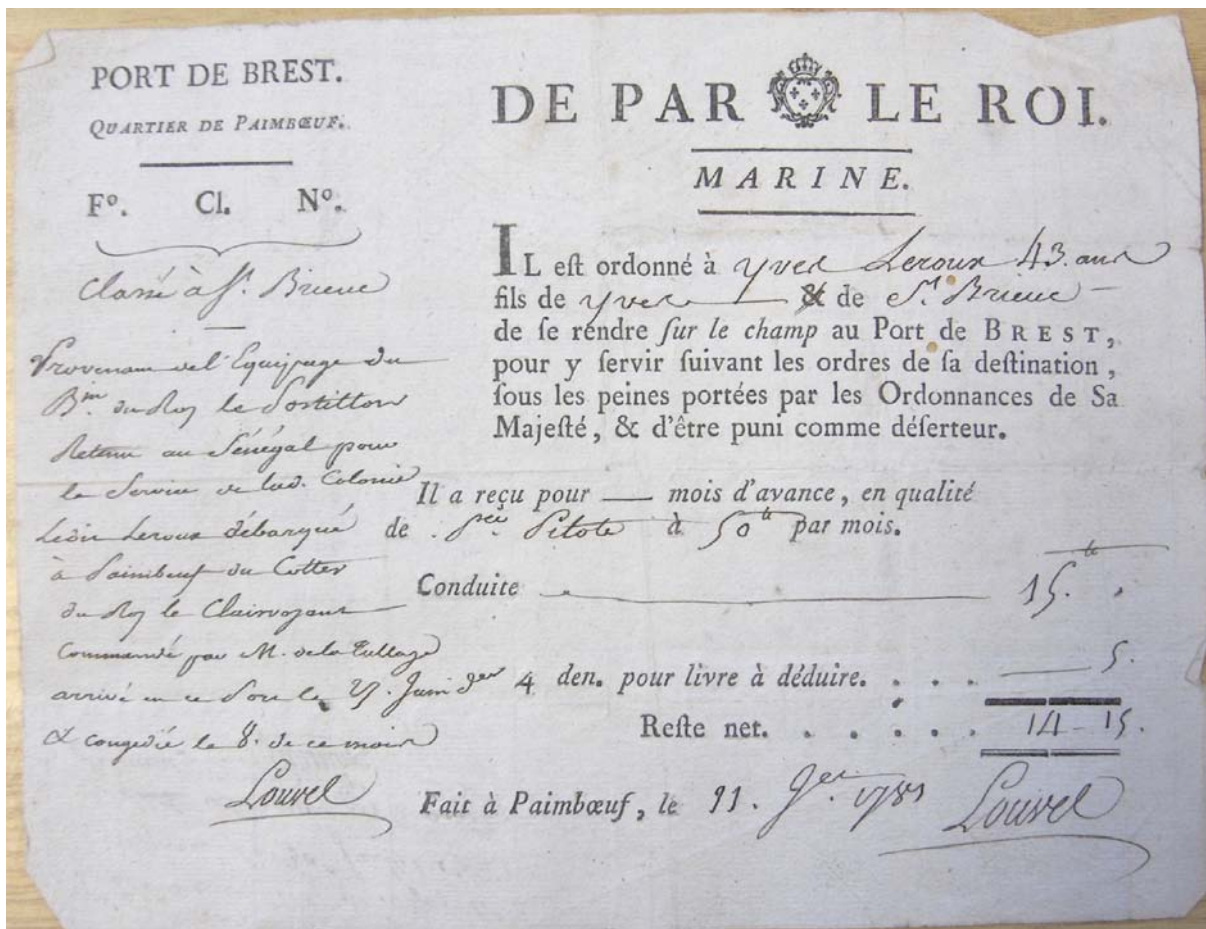 PORT DE BREST.
QUARTIER DE PAIMBŒUF.
Fº. Cl. Nº.
Classé à St. Brieuc
Provenant de l'Equipage du
Bm. du Roy le Postillon
Retenu au Sénégal pour
le Service de lad. Colonie
Ledit Leroux débarqué
à Paimbeuf du Cotter
du Roy le Clairvoyant
Commandé par M. de la Tullaye
arrivé en ce Port le 25. Juin der
& congedié le 8. de ce mois
Louvel
DE PAR LE ROI.
MARINE.
IL eſt ordonné à Yves Leroux 43. ans
fils de Yves & de St. Brieuc
de ſe rendre ſur le champ au Port de BREST,
pour y ſervir ſuivant les ordres de ſa deſtination,
ſous les peines portées par les Ordonnances de Sa
Majeſté, & d'être puni comme déſerteur.
Il a reçu pour — mois d'avance, en qualité
de Pilote à 50 tt par mois.
Conduite 15. tt
4 den. pour livre à déduire. . . . 5.
Reſte net. . . . . . 14 - 15.
Fait à Paimbœuf, le 11.
Louvel